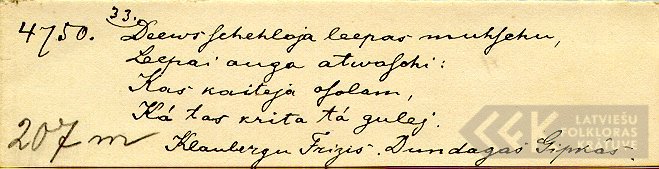 33.
4750. Deews schehloja leepas muhschu,
Leepai auga atwaschi:
Kas kaiteja osolam,
Ká tas krita tá gulej.
207 m
Klaubergu Frizis. Dundagas Gipkás.
LATVIEŠU
FOLKLORAS
KRĀTUVE